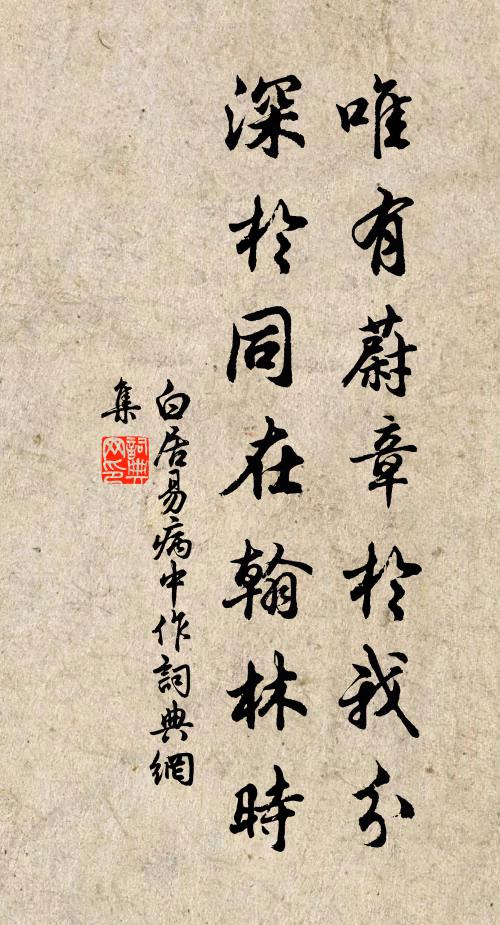 唯有蔚章於我分
深於同在翰林時
白居易病中作詞典網
集
詞典網印